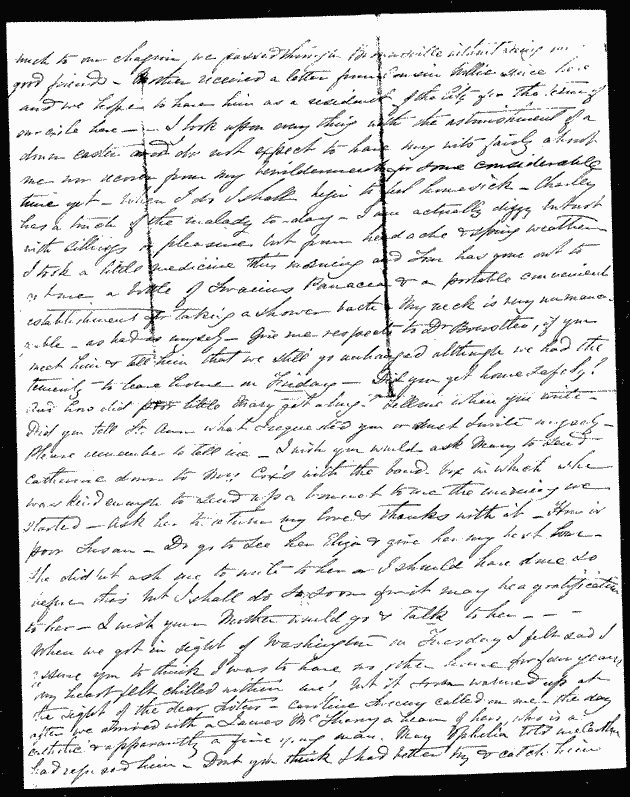 much to our chagrin, we passed through Brownsville without seeing our
good friends - Mother received a letter from Cousin Willie since here
and we hope to have him as a resident of the City for the term of
our exile here - - I look upon every thing with the astonishment of a
down easter and do not expect to have my wits fairly about
me nor recover from my bewilderment for some considerable
time yet - When I do I shall begin to feel homesick - Charley
has a touch of the malady to-day - I am actually dizzy but not
with but from head ache & spring weather
I took a little medicine this morning and Tom has gone out to
a bottle of Panacea & a portable convenient
establishment for taking a shower bath - My neck is very unmanage-
able - as bad as myself - Give my respects to Dr if you
meet him & tell him that we still go unhanged although we had the
temerity to leave home on Friday - Did you get home safely?
And how did poor little Mary get along? Tell me when you write -
Did you tell St. Ann what I requested you or must I write myself -
Please remember to tell me - I wish you would ask Mary to send
Catherine down to Mrs. Cox's with the band box in which she
was kind enough to send up a bonnet to me the morning we
started - ask her to return my love & thanks with it - How is
poor Susan - Do go to see her Eliza & give her my best love -
She didn't ask me to write to her or I should have done so
before this but I shall do so soon for it may be a gratification
to her - I wish your Mother would go & talk to her - - -
When we got in sight of Washington on Tuesday I felt sad I
assure you to think I was to have no other home for four years
"my heart felt chilled within me", but it soon warmed up at
the sight of the dear Sisters - Caroline called on me the day
after we arrived with a James McSherry a beau of hers, who is a
catholic & apparantly a fine young man. May Ophelia told me Caroline
had refused him - Dont you think I had better try & catch him